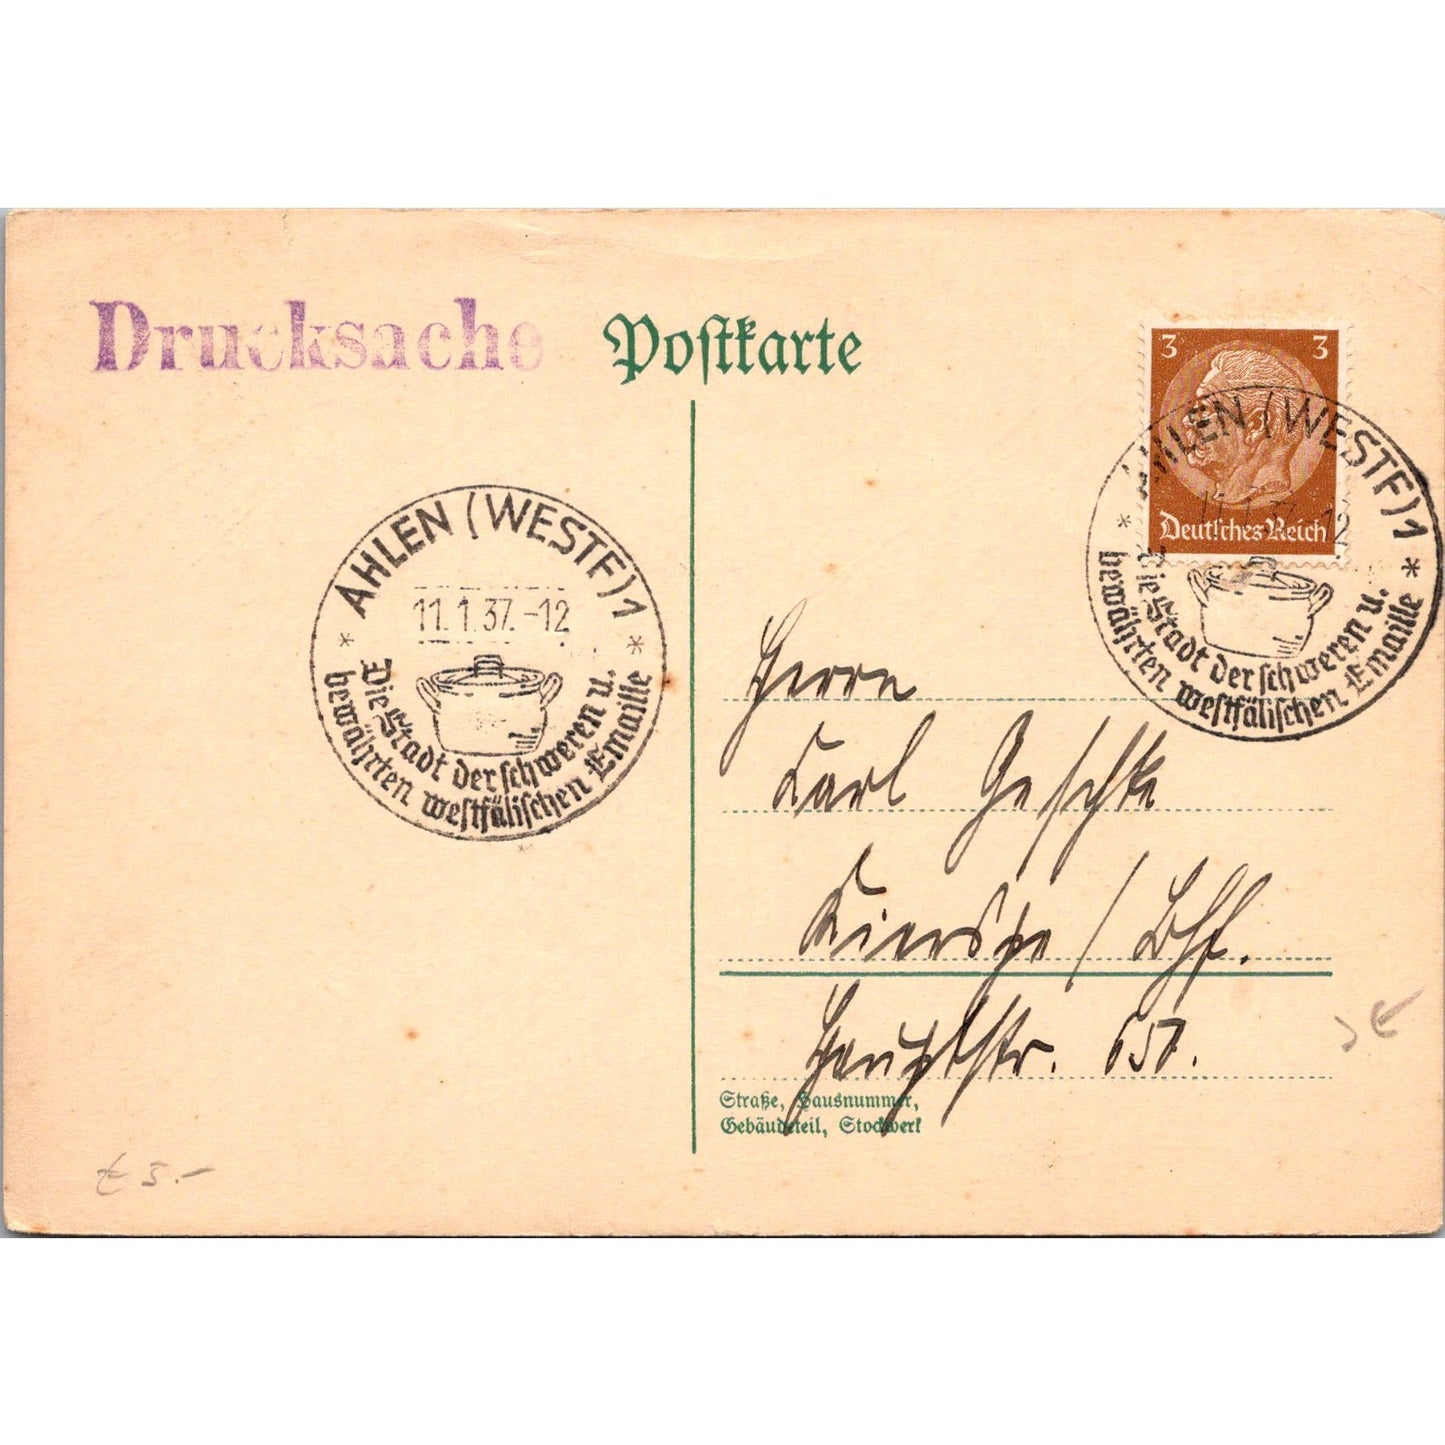 Drucksache
Postkarte
3 3
Deutsches Reich
AHLEN (WESTF) 1
11.1.37.-12
Die Stadt der schweren u.
bewährten westfälischen Emaille
AHLEN (WESTF) 1
11.1.37.-12
Die Stadt der schweren u.
bewährten westfälischen Emaille
Herrn
Karl Geschke
Kierspe / Bhf.
Hauptstr. 657.
Straße, Hausnummer,
Gebäudeteil, Stockwerk
5.-